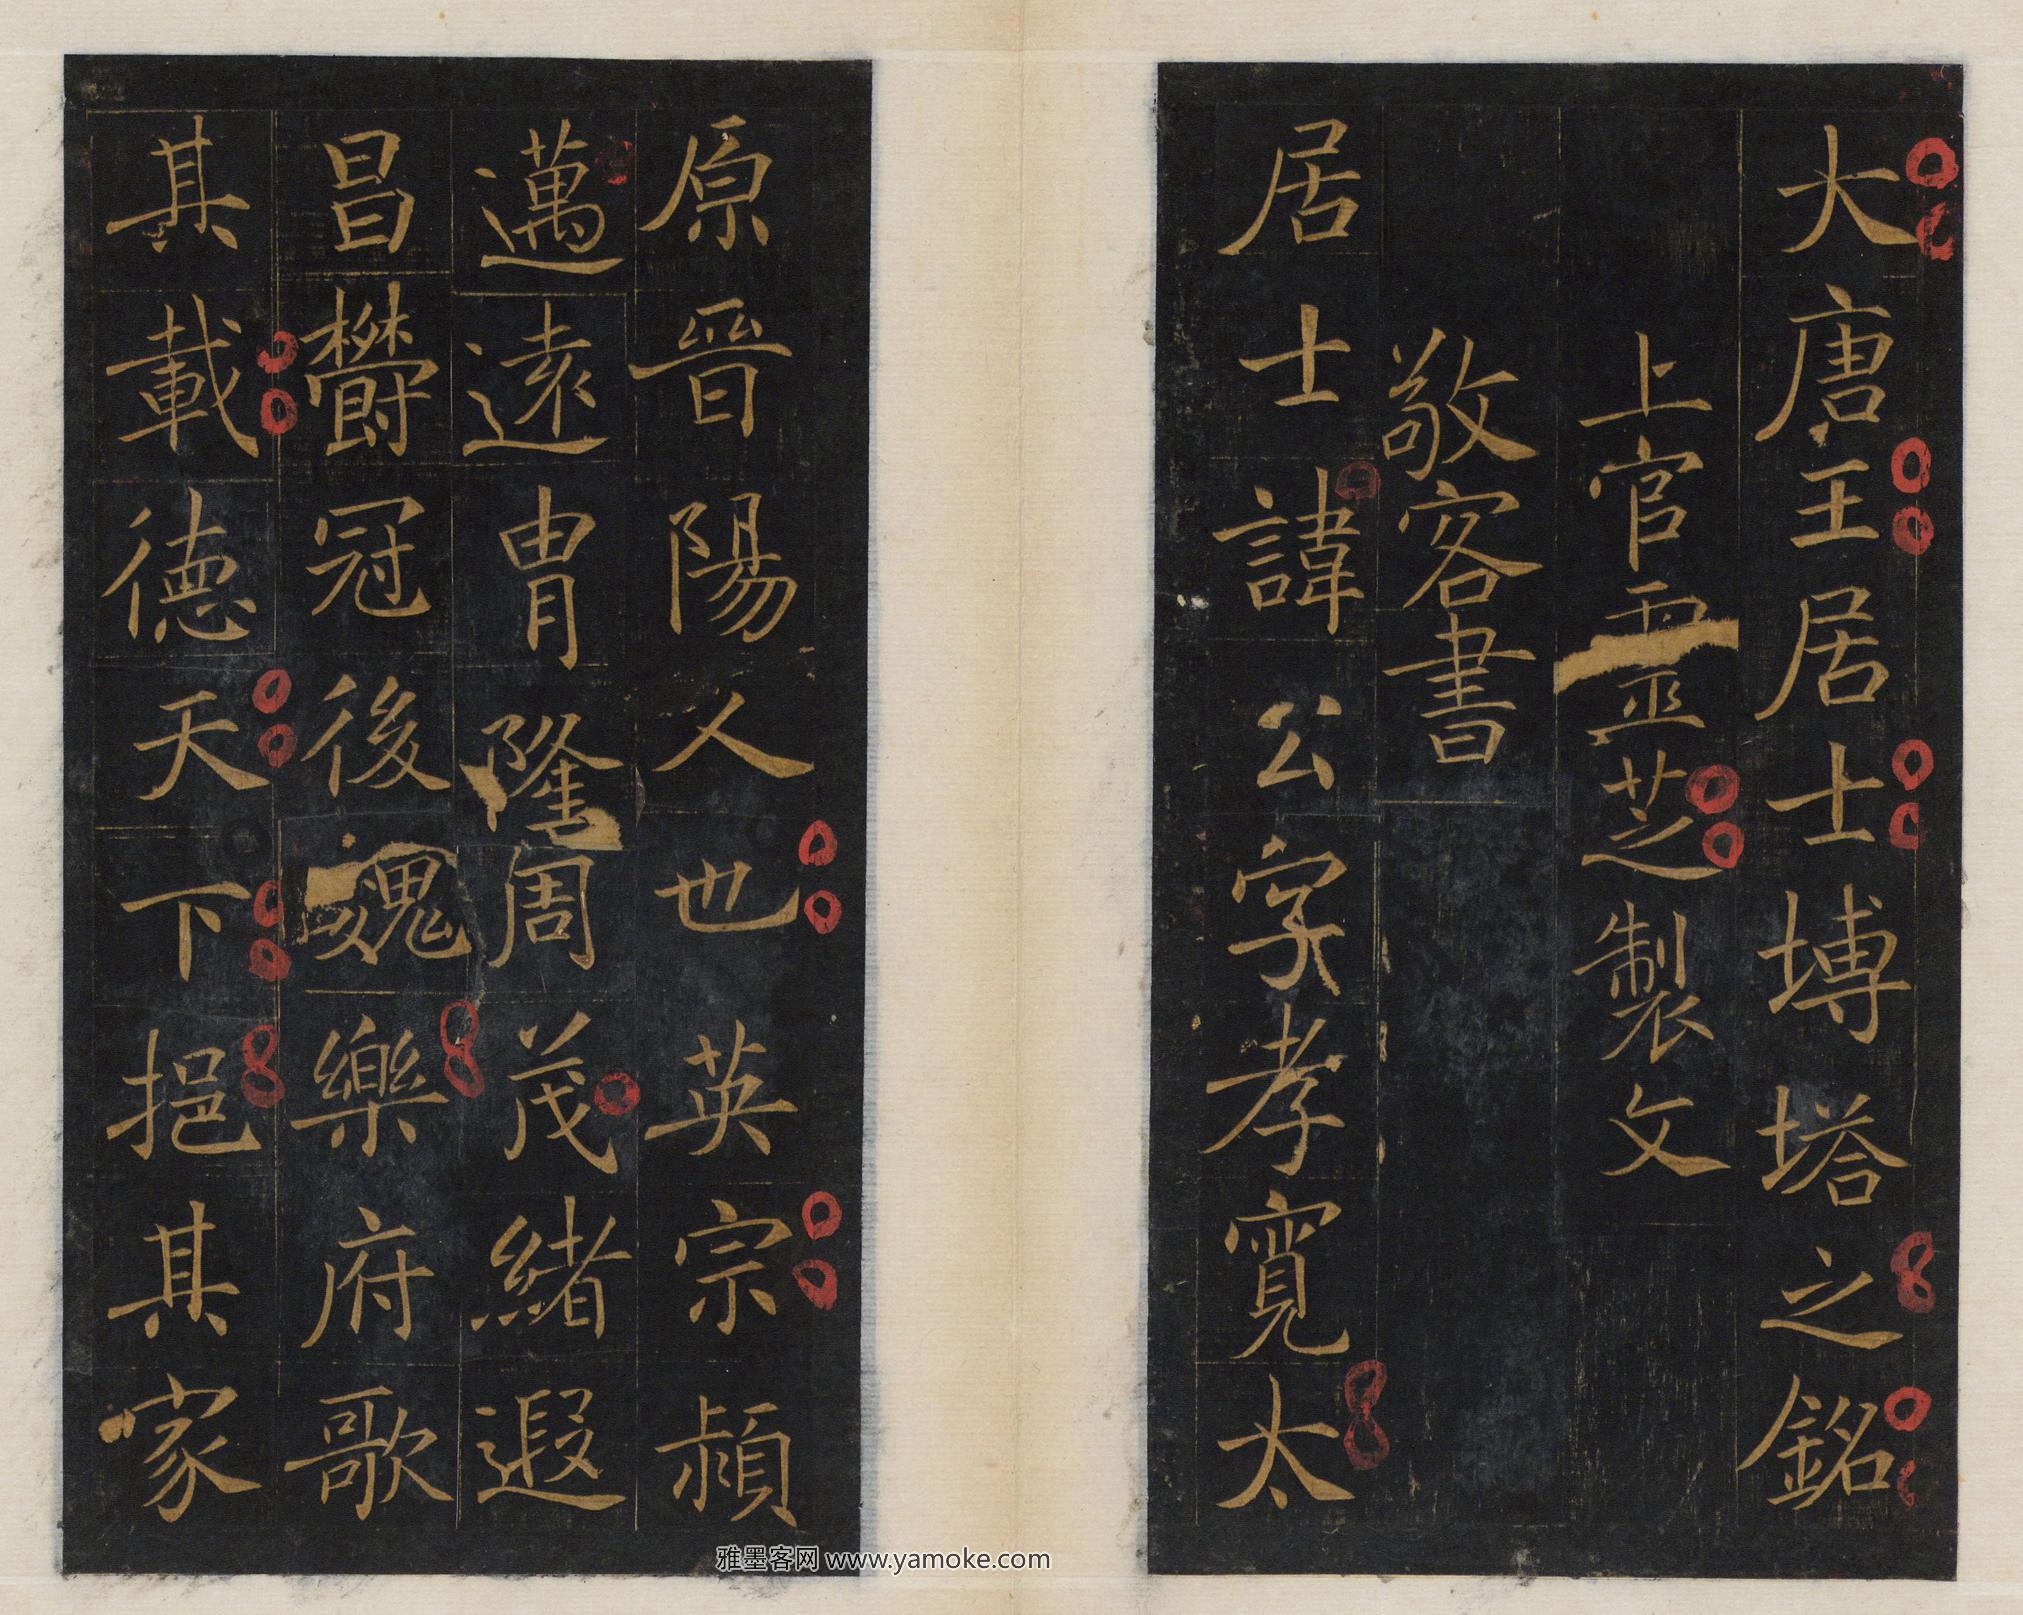 大唐王居士塼塔之銘
上官靈芝製文
敬客書
居士諱公字孝寬太
原晉陽人也英宗潁
邁遠冑隆周茂緒遐
昌欝冠後魏樂府歌
其載德天下挹其家
雅墨客网 www.yamoke.com